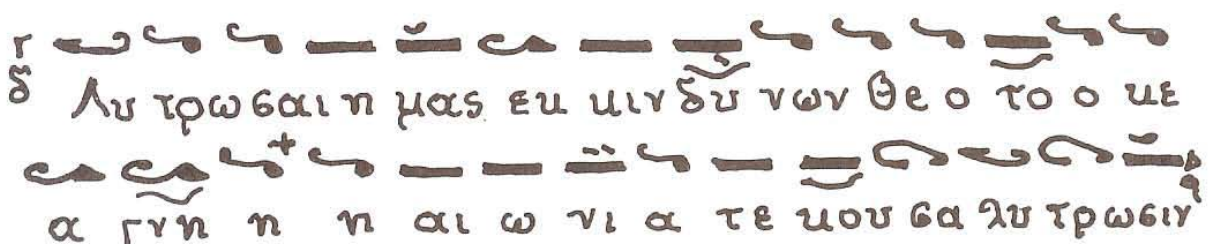 Λυ τρω σαι η μας εκ κιν δυ νων Θε ο το ο κε
α γνη η η αι ω νι α τε κου σα λυ τρωσιν